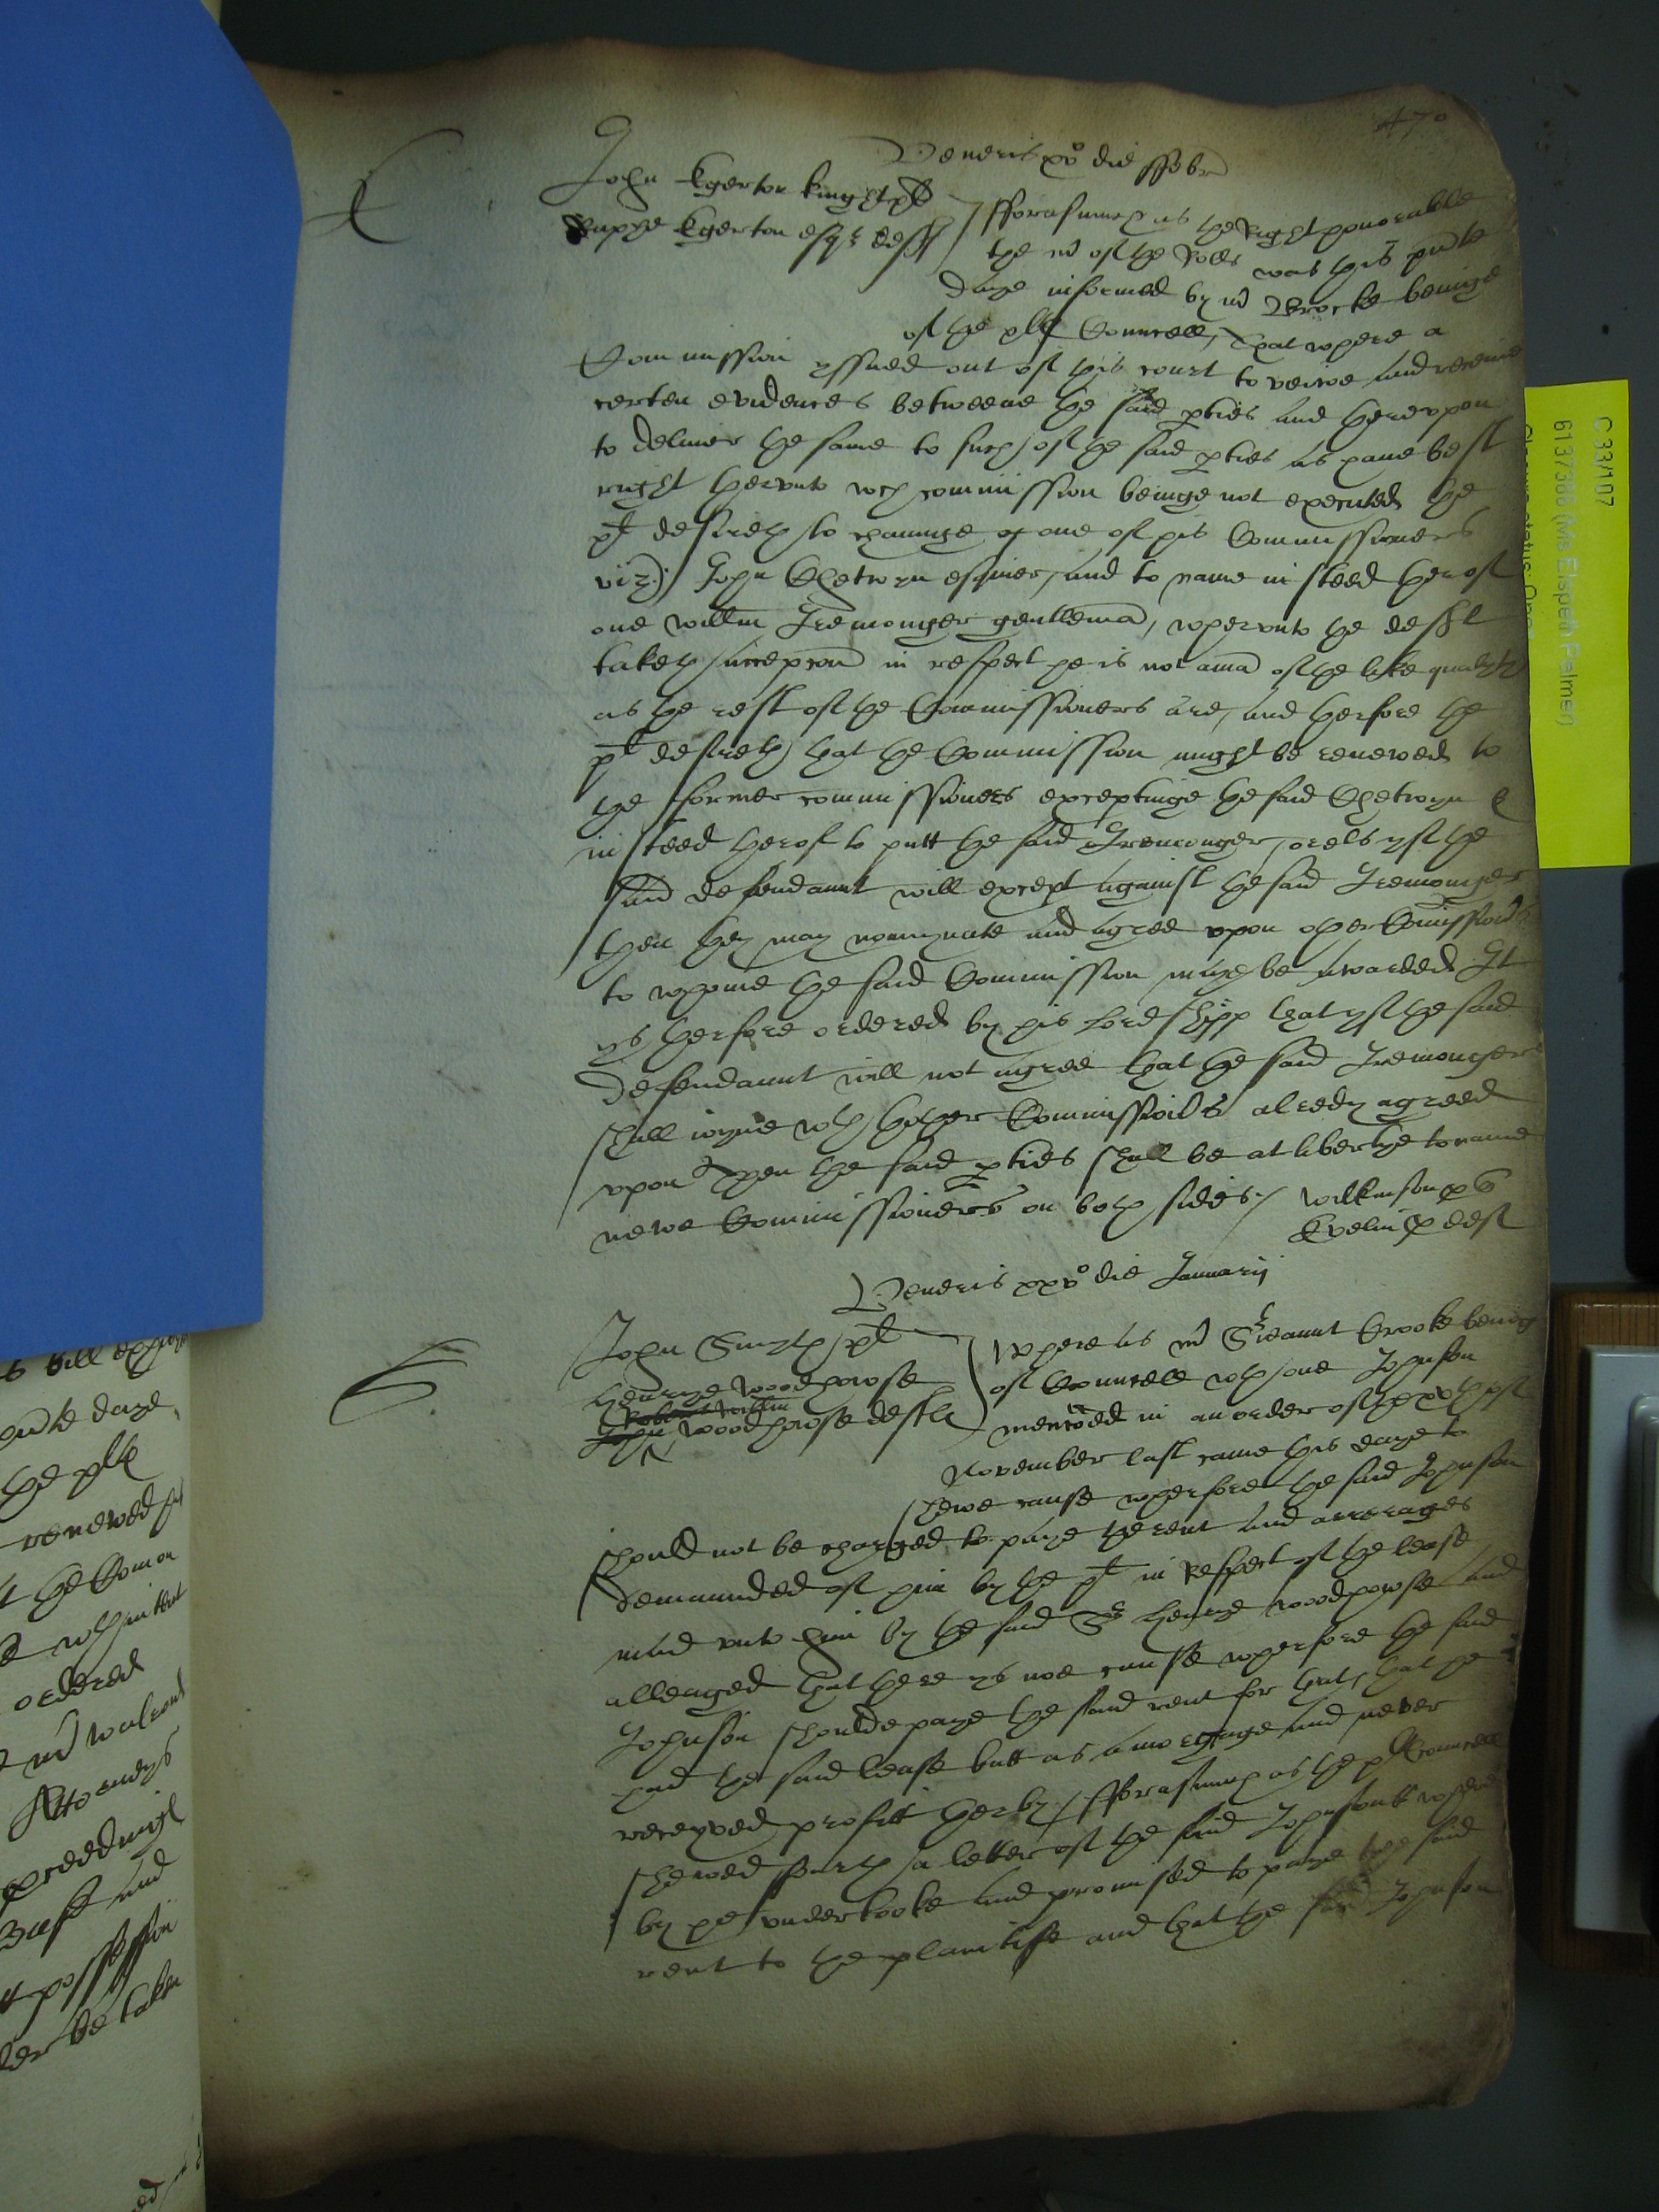 470
Veneris xv° die ffebr
John Egerton knight pl
Raphe Egerton esqr deff
fforasmuch as the Right honorable
the mr of the Rolls was this pnte
daye informed by mr Brocke beinge
of the plts Councell, That where a
Commission yssued out of this court to veiwe and receive
certen evidences betweene the said pties and therevpon
to deliuer the same to such of the said pties as haue best
right thervnto wch commission beinge not executed the
pl desireth to chaunge of one of his Commissioners
viz) John Chetwyn esquier, and to name in steed therof
one willm Iremonger gentleman, whervnto the deft
taketh excepcon in respect he is not a man of the like qualyty
as the rest of the Commissioners are, and therfore the
pl desireth that the Commission might be renewed to
the former commissioners exceptinge the said Chetwyn &
in steed therof to putt the said Iremonger, or els yf the
said defendaunt will except against the said Iremonger
then they may nominate and agree vpon other Comissionrs
to whome the said Commission maye be awarded It
ys therfore ordered by his Lordshipp that yf the said
defendaunt will not agree that the said Iremonger
shall ioyne wth thother Commissionrs alredy agreed
vpon Then the said pties shall be at libertye to name
newe Commissioners on both sides / Wilkinson p q
Evelin p def
Veneris xxv° die Januarij
John Smyth pl
Henrye Woodhowse
Robert Willm
John Woodhowse deftes
Where as mr Sreaunt Crooke being
of Councell wth one Johnson
mencoed in an order of the xxvth of
November last came this daye to
shewe cause wherfore the said Johnson
should not be charged to paye the rent and arrerages
demaunded of him by the pl in respect of the lease
mad vnto him by the said Sr Henrye Woodhowse and
alleaged that there ys noe cause wherfore the said
Johnson shoulde paye the said rent for that, that he
had the said lease butt as a morgage and never
receyved profitt therby / fforasmuch as the pls councell
shewed fourth a letter of the said Johnsons where
by he vndertooke and promised to paye the said
rent to the plaintife and that the said Johnson
C 33/107
6137386 (Ms Elspeth Palmer)
s bill
pnte daye
the plt
renewed
t the Comon
wthin
ordered
mr
Attorneys
and
possession
be taken